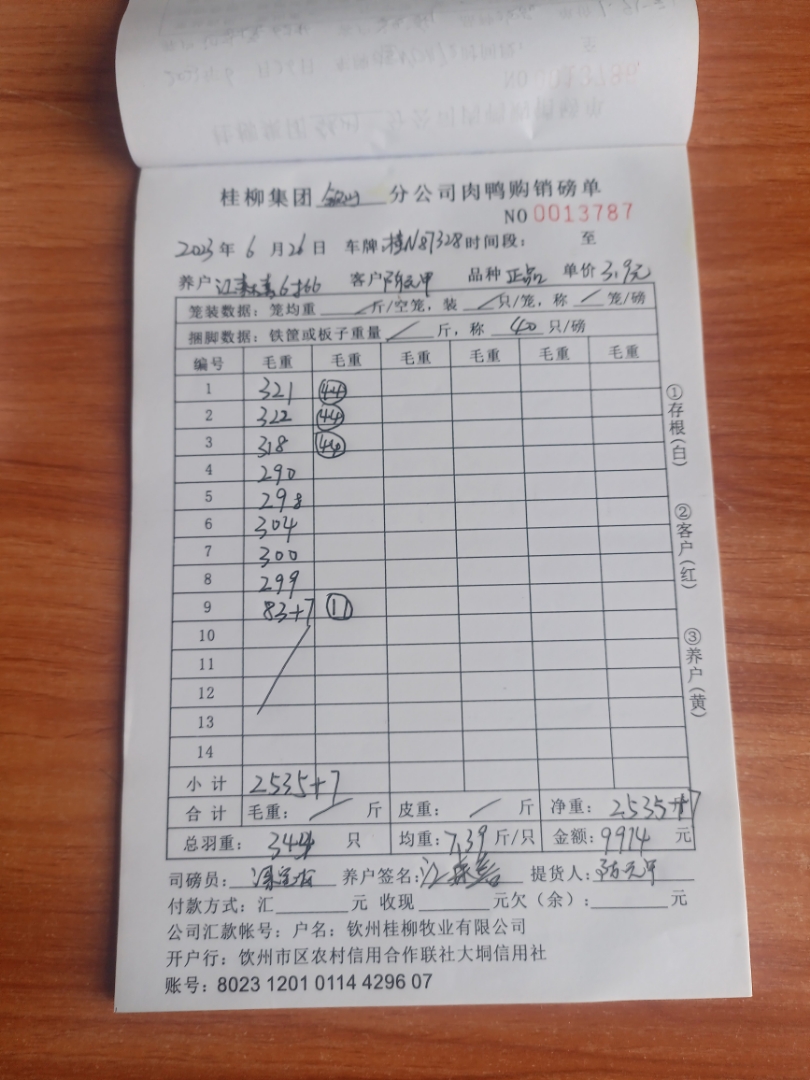 桂柳集团 分公司肉鸭购销磅单
NO 0013787
2023年 6 月 26 日 车牌: 桂N87328 时间段: 至
养户 江 6 客户 陈元甲 品种 正品 单价 3.9元
笼装数据: 笼均重 / 斤/空笼, 装 / 只/笼, 称 / 笼/磅
捆脚数据: 铁筐或板子重量 / 斤, 称 40 只/磅
编号 毛重 毛重 毛重 毛重 毛重 毛重
1 321 44
2 322 44
3 318 44
4 290
5 298
6 304
7 300
8 299
9 83+7 11
10
11
12
13
14
小计 2535+7
合计 毛重: / 斤 皮重: / 斤 净重: 2535+7
总羽重: 344 只 均重: 7.39 斤/只 金额: 9914 元
司磅员: 养户签名: 江 提货人: 陈元甲
付款方式: 汇 元 收现 元欠(余): 元
公司汇款帐号: 户名: 钦州桂柳牧业有限公司
开户行: 钦州市区农村信用合作联社大垌信用社
账号: 8023 1201 0114 4296 07
①存根(白)
②客户(红)
③养户(黄)